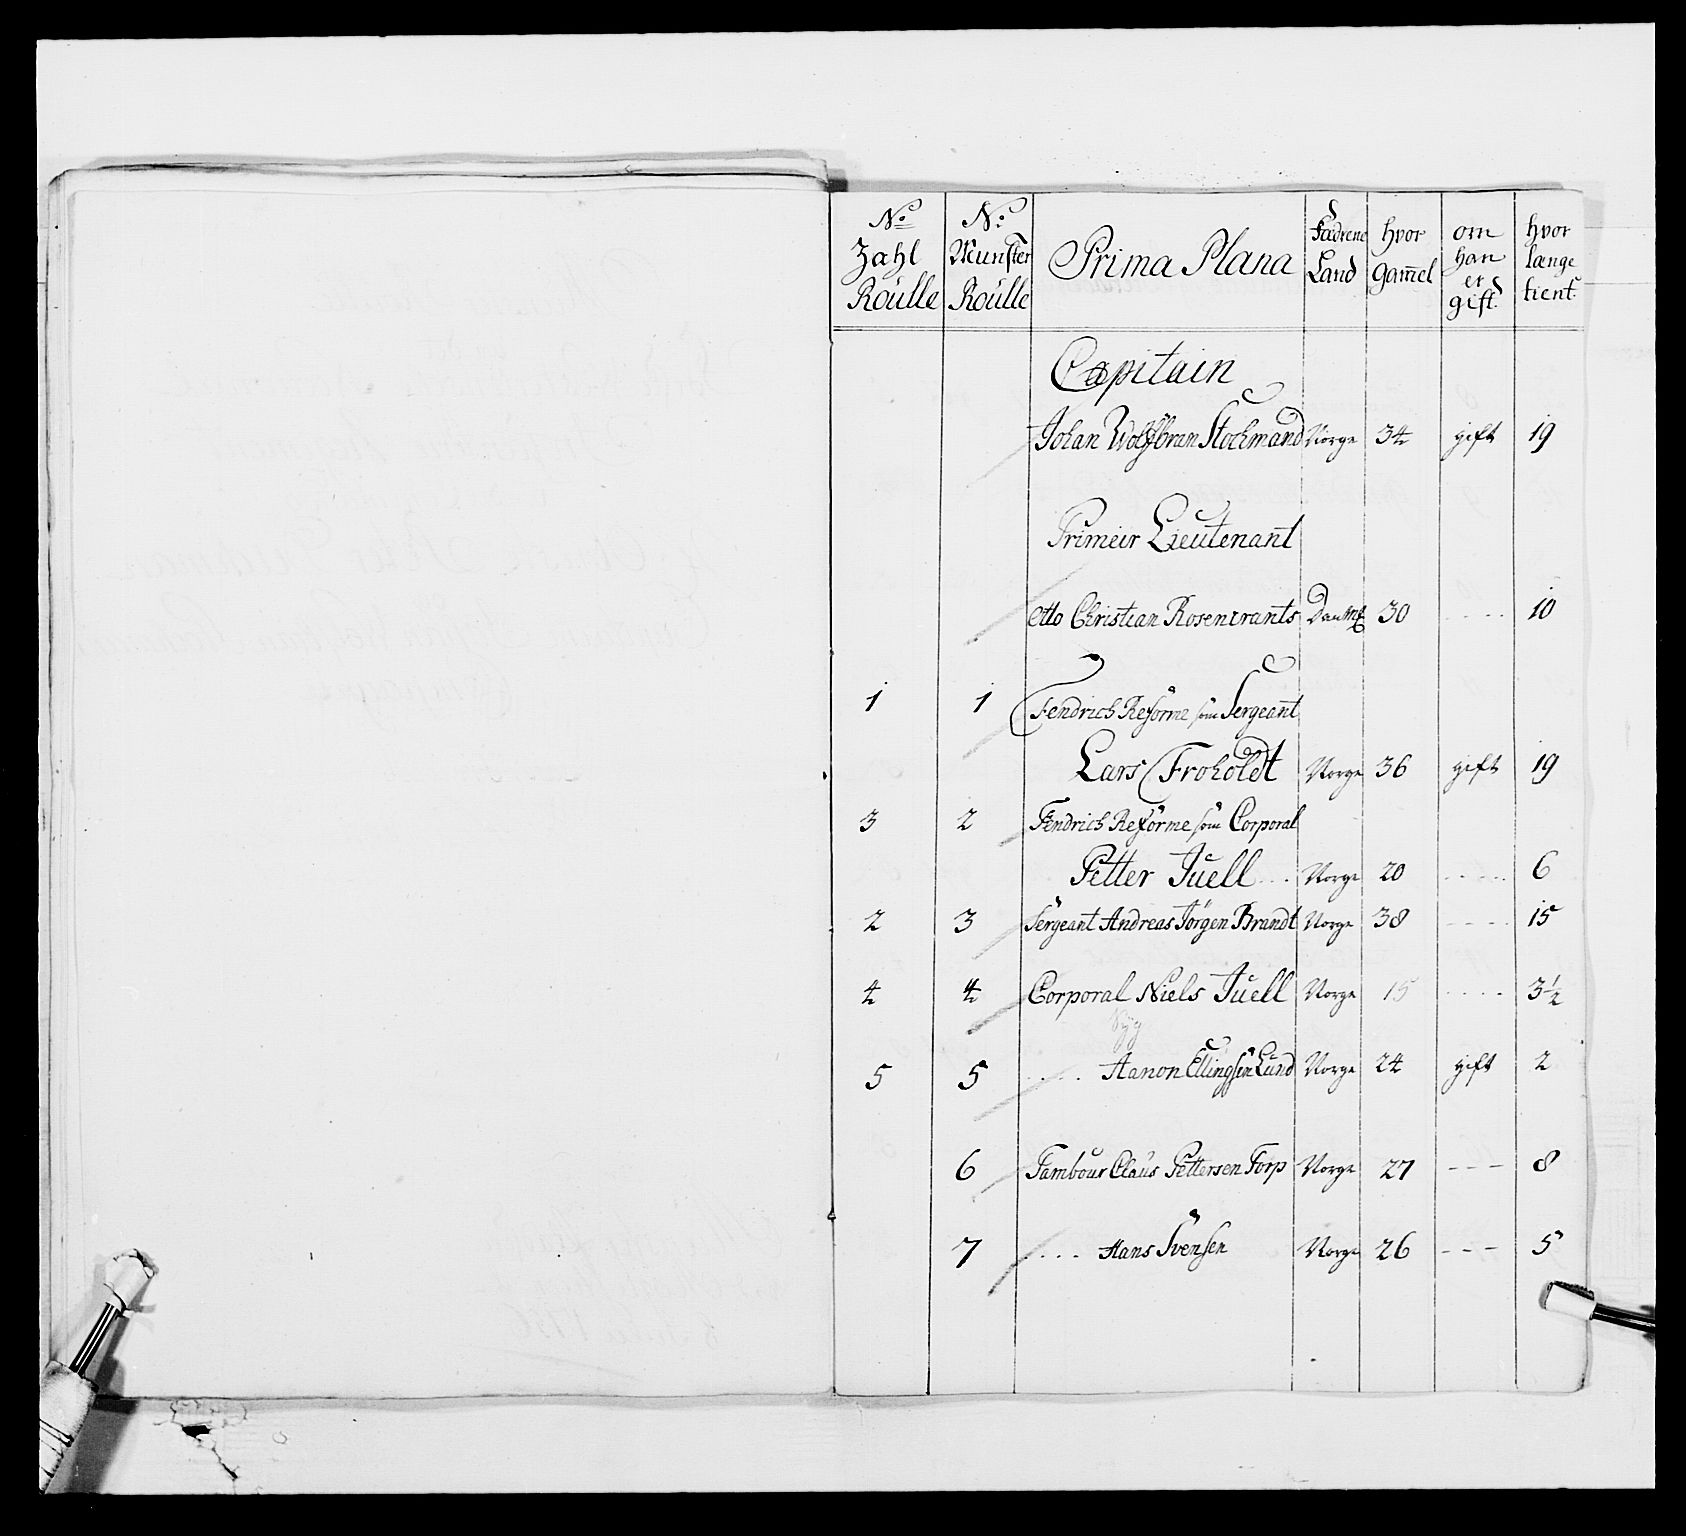 No Zahl Roulle | No: Munster Roulle | Prima Plana | Fædrene Land | hvor gam̄el | om han er gift. | hvor længe tient.
Capitain
Johan Wolffbran Stochmand Norge 34 gift 19
Primeir Lieutenant
Otto Christian Rosencrants Danmk 30 .... 10
1 1 Fendrich Reforme som Sergeant
Lars Froholdt Norge 36 gift 19
3 2 Fendrich Reforme som Corporal
Petter Juell ... Norge 20 ..... 6
2 3 Sergeant Andreas Jørgen Brandt Norge 38 .... 15
4 4 Corporal Niels Juell Norge 15 .... 3½
Syg
5 5 .... Aanon Ellingsen Lund Norge 24 gift 2
6 Tambour Claus Pettersen Torp Norge 27 --- 8
7 .... Hans Svensen Norge 26 --- 5